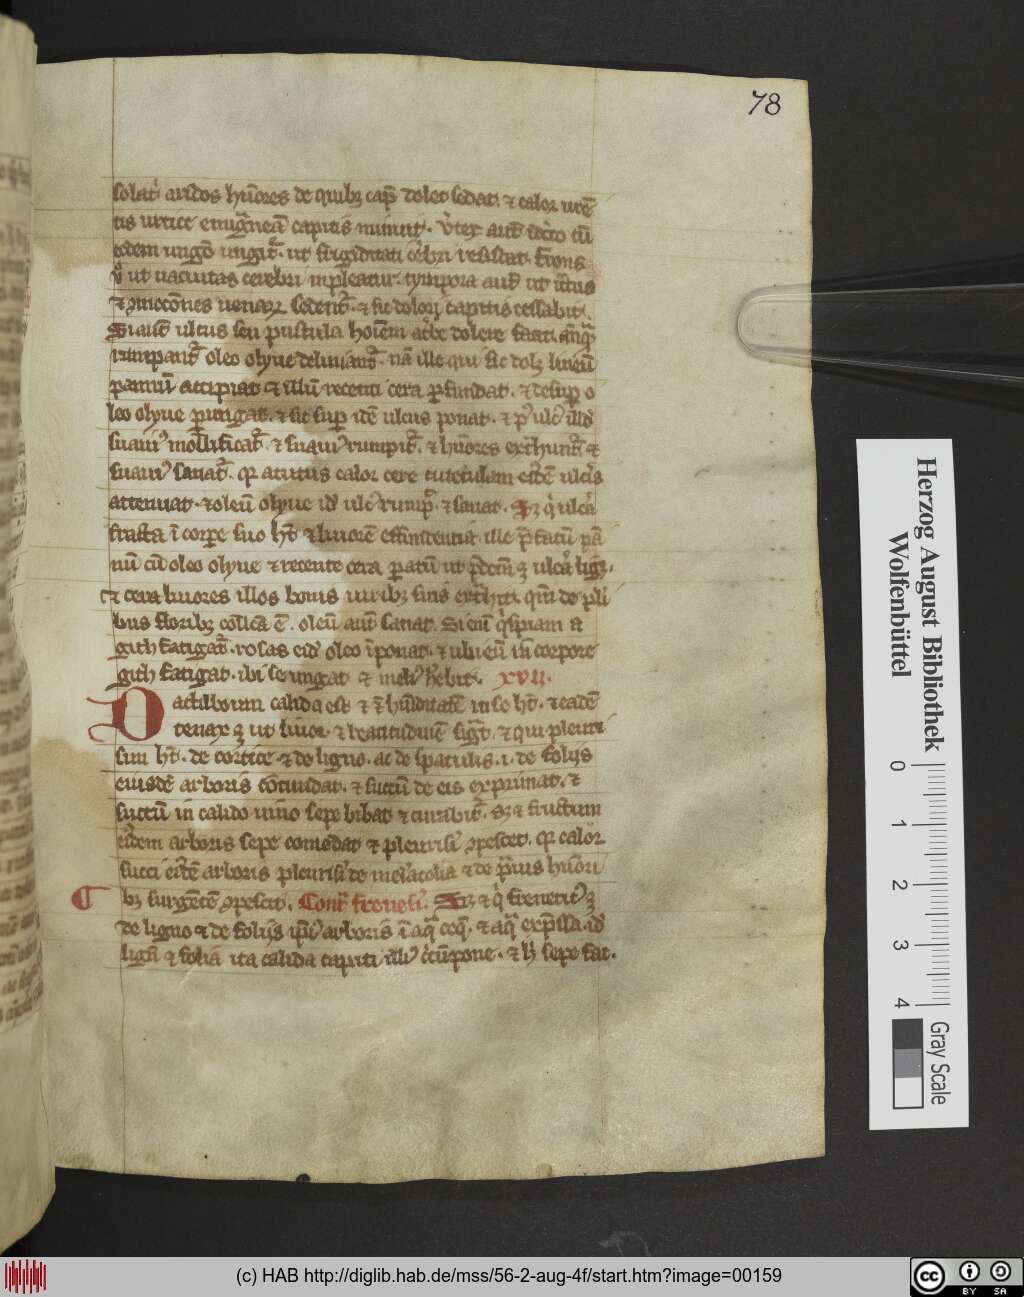 78
solat᷑ aridos hūores de quibꝫ cap̄ dolet sedat. ⁊ calor urē
tis urtice emigͣneā capitis minuit. v̓tex aut̄ id̓o cū
eodem ungō ungit᷑. ut frigiditati ceb̓ri resistat. frons
v̓ ut uacuitas cerebri inpleatur. tympora aut̄ ut
⁊ sedent᷑. ⁊ sic dolor capitis cessabit.
Si aut̄ ulcus seu pustula hoīem dolere facit.
rumpant᷑ oleo olyue deliniant᷑. nā ille qui sic dolꝫ lineū
pannū accipiat ⁊ illū recenti cera ꝑfundat. ⁊ desuꝑ o
leo olyue ꝑungat. ⁊ sic suꝑ idē ulcus ponat. ⁊
suauiꝰ mollificat᷑. ⁊ suauiꝰ rumpit᷑. ⁊ hūores ext̓hunt᷑ ⁊
suauiꝰ sanat᷑. acutus calor cere eid̄e ulc̓is
attenuat. ⁊ oleū olyue id̓ ulcꝰ rump᷑. ⁊ sanat. Sꝫ q̓ ulc̓a
fracta ī corpe suo hꝫ ⁊ liuorē effundentia. ille p̄fatū pā
nū cū oleo olyue ⁊ recente cera ꝑatū ut p̄dc̄m ꝫ ulc̓a ligꝫ.
⁊ cera liuores illos bonis uiribꝫ suis ext̓hit. qm̄ de pl̓i
bus floribꝫ collc̄a ē. oleū aut̄ sanat. Si eni q̓spiam a
gith fatigat᷑. rosas cū oleo īponat. ⁊ ubi eū in corpore
gith fatigat. ibi se ungat ⁊ meliꝰ h̓ebit. xvii.
Dactilboum calida est ⁊ q̄ hūiditatē in se hꝫ. ⁊ eadē
tenax ꝫ ut liuor. ⁊ beatitudinē sig̓t. ⁊ qui pleuri
sim hꝫ. de cortice ⁊ de ligno. ac de spatulis. i. de folijs
eiusdē arboris cōtundat. ⁊ succū de eis exprimat. ⁊
succū in calido uino sepe bibat ⁊ curabit᷑. Sꝫ ⁊ fructum
eid̓em arboris sepe comedat ⁊ pleurisī ꝯpescet. calor
succi eid̄e arboris pleurisī de mela̓colia ⁊ de p̓uis hūori
bꝫ surgētē ꝯpescit. Contͣ frenesī. Sꝫ ⁊ q̓ freneticꝰ ꝫ
de ligno ⁊ de folijs ip̄iꝰ arboris ī aqͣ coq̄. ⁊ aqͣ exp̄ssa. id̓
lignū ⁊ folia ita calida capiti illiꝰ c̓cūpone. ⁊ h̓ sepe fac.
Herzog August Bibliothek
Wolfenbüttel
0 1 2 3 4
Gray Scale
(c) HAB http://diglib.hab.de/mss/56-2-aug-4f/start.htm?image=00159
cc BY SA